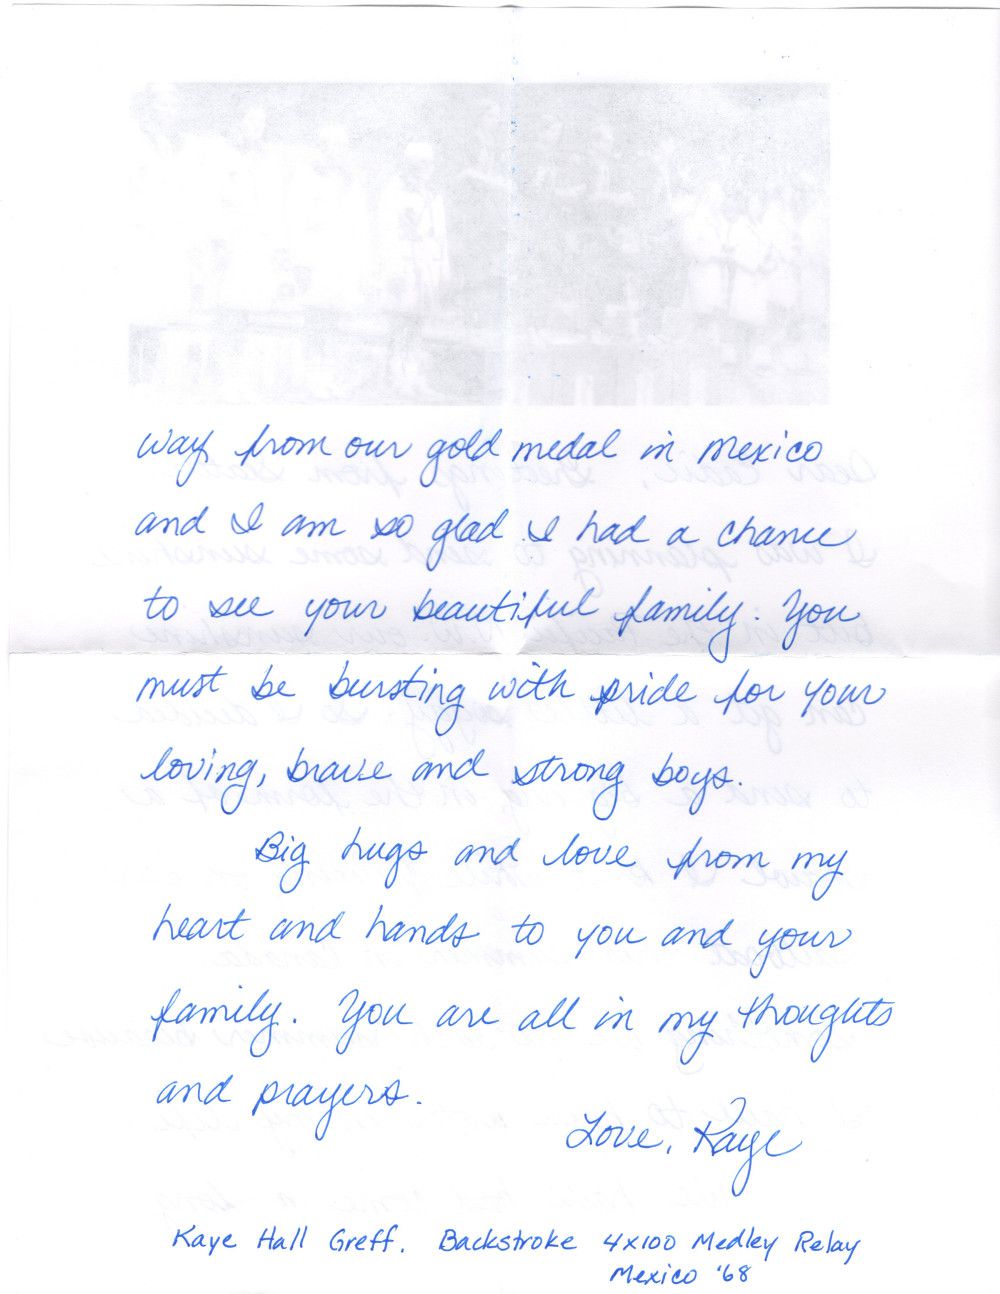 way from our gold medal in Mexico
and I am so glad I had a chance
to see your beautiful family. You
must be bursting with pride for your
loving, brave and strong boys.
Big hugs and love from my
heart and hands to you and your
family. You are all in my thoughts
and prayers.
Love, Kaye
Kaye Hall Greff. Backstroke 4x100 Medley Relay
Mexico '68